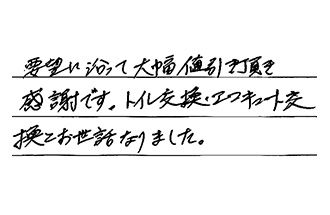 要望に沿って大幅値引き頂き
感謝です。トイレ交換・エコキュート交
換とお世話なりました。